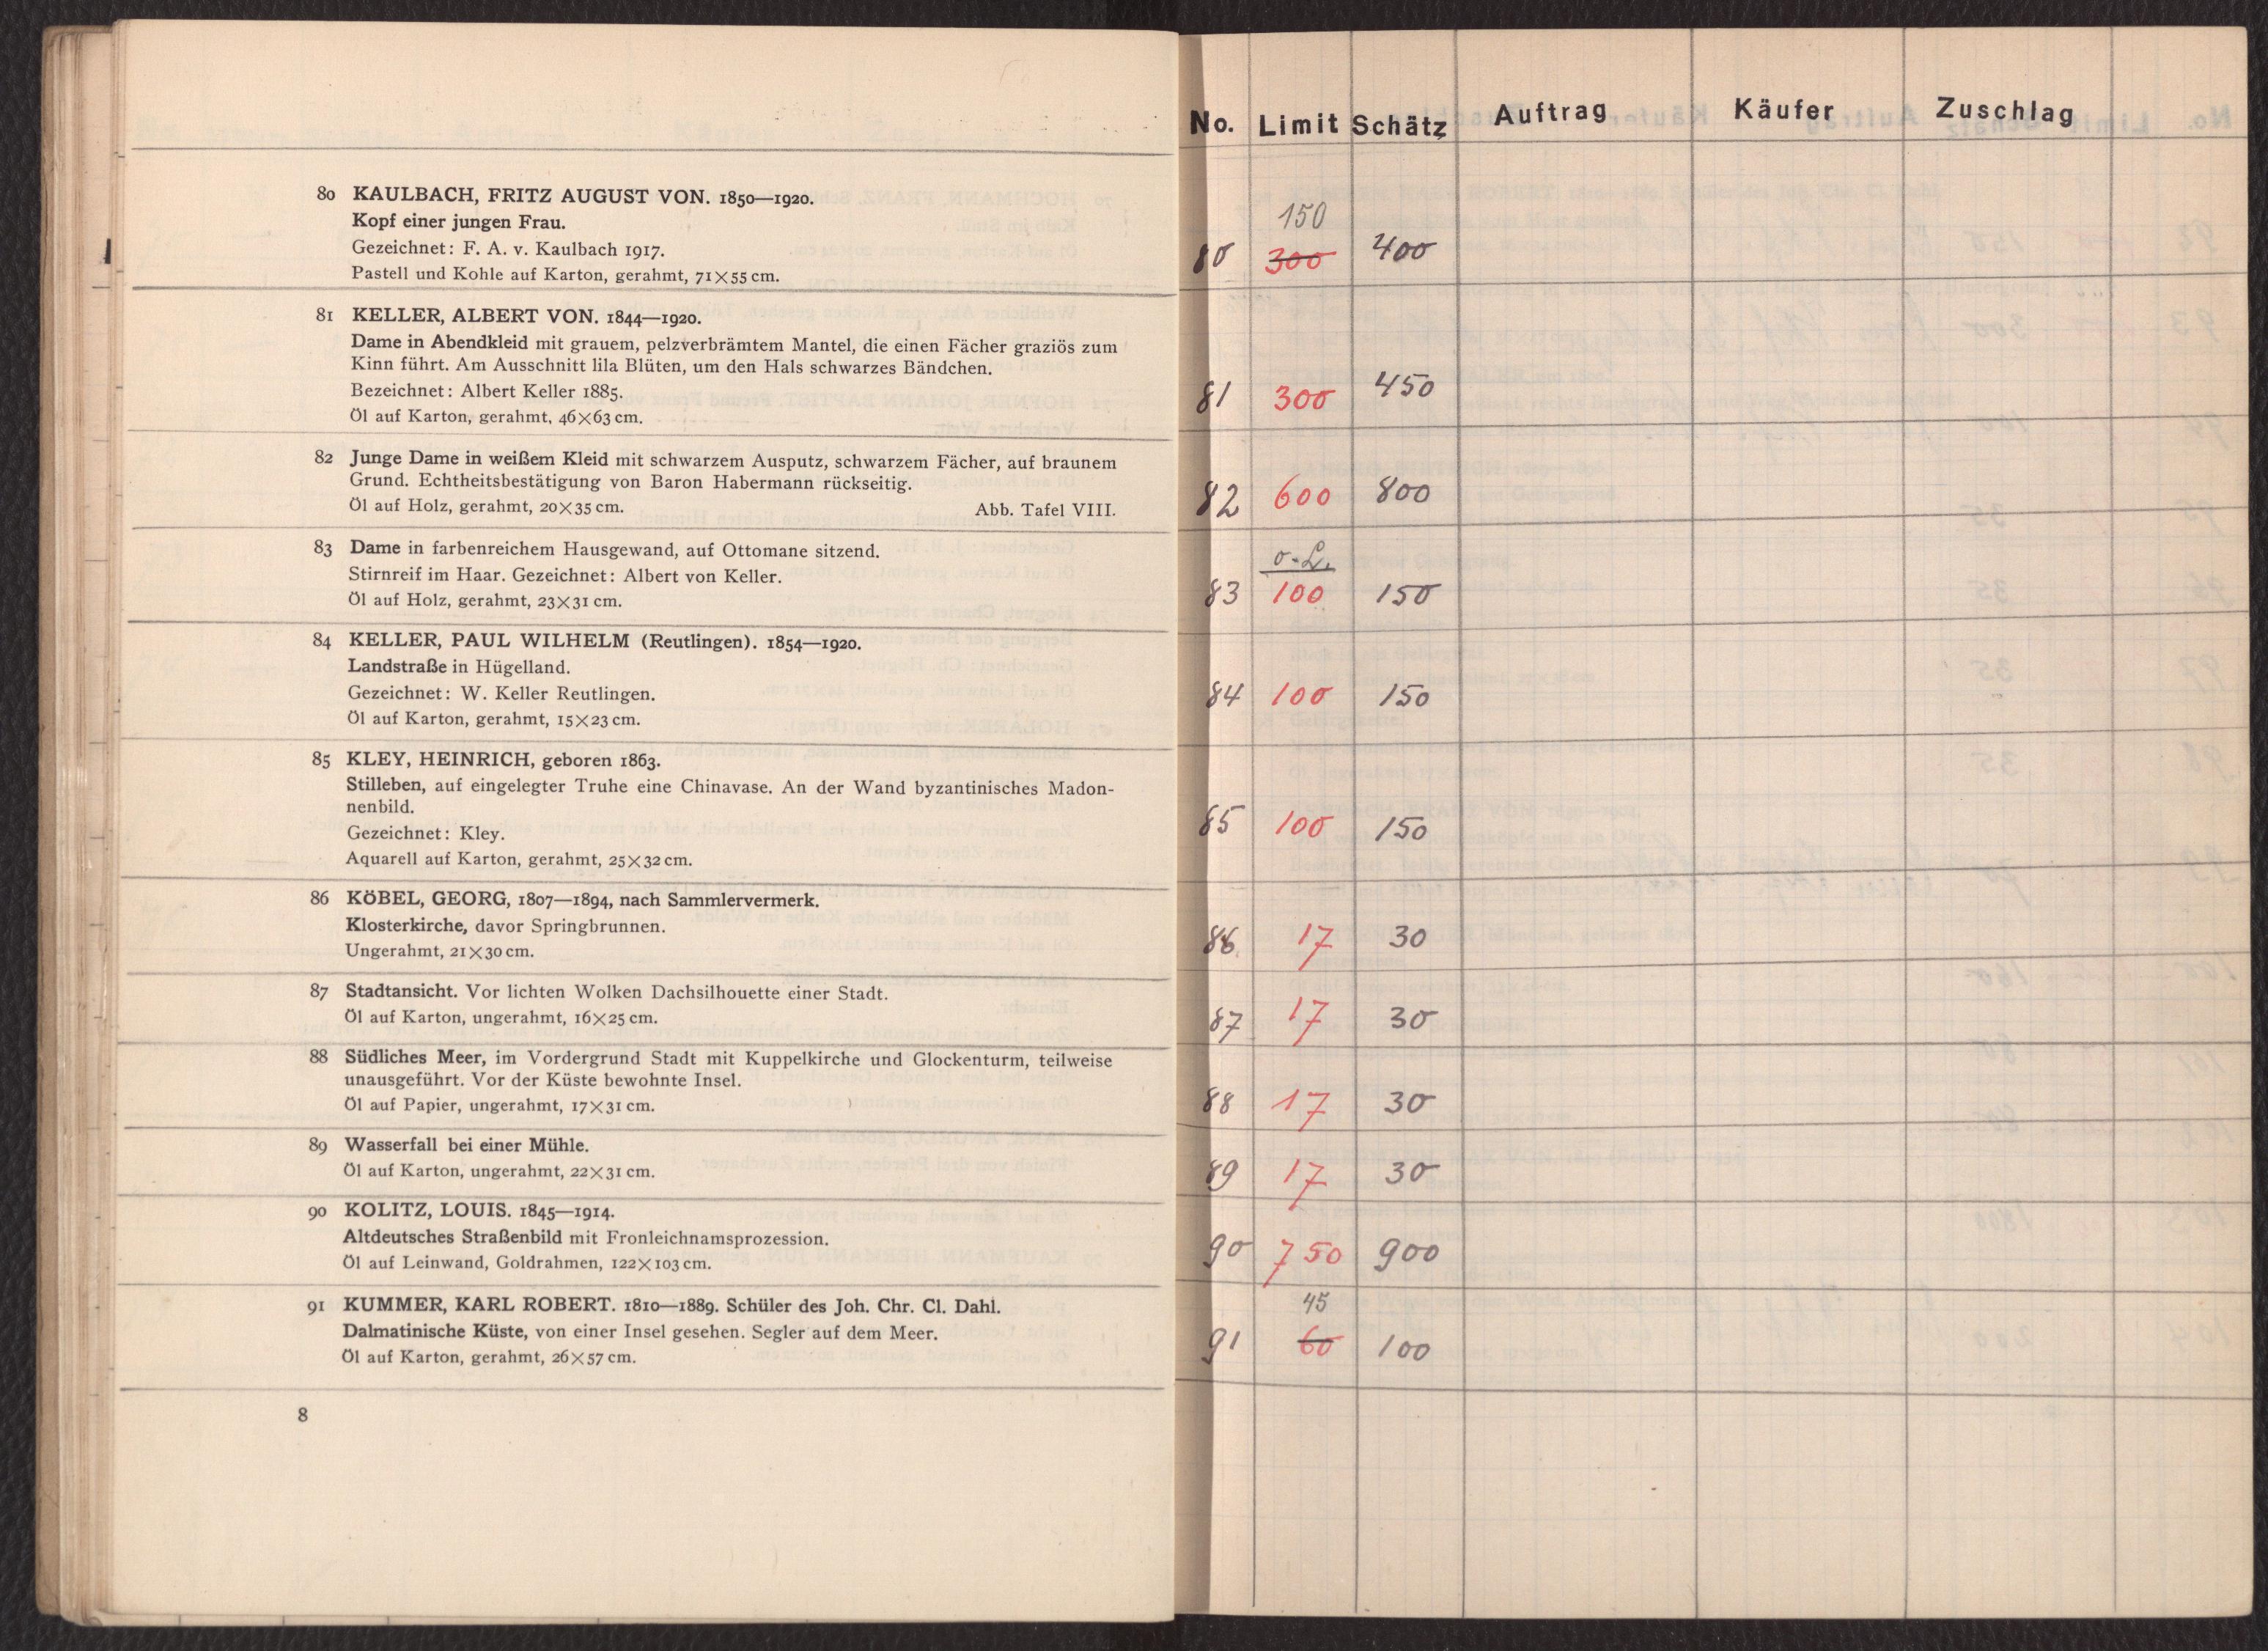 80 KAULBACH, FRITZ AUGUST VON. 1850—1920.
Kopf einer jungen Frau.
Gezeichnet: F. A. v. Kaulbach 1917.
Pastell und Kohle auf Karton, gerahmt, 71×55 cm.
81 KELLER, ALBERT VON. 1844—1920.
Dame in Abendkleid mit grauem, pelzverbrämtem Mantel, die einen Fächer graziös zum
Kinn führt. Am Ausschnitt lila Blüten, um den Hals schwarzes Bändchen.
Bezeichnet: Albert Keller 1885.
Öl auf Karton, gerahmt, 46×63 cm.
82 Junge Dame in weißem Kleid mit schwarzem Ausputz, schwarzem Fächer, auf braunem
Grund. Echtheitsbestätigung von Baron Habermann rückseitig.
Öl auf Holz, gerahmt, 20×35 cm. Abb. Tafel VIII.
83 Dame in farbenreichem Hausgewand, auf Ottomane sitzend.
Stirnreif im Haar. Gezeichnet: Albert von Keller.
Öl auf Holz, gerahmt, 23×31 cm.
84 KELLER, PAUL WILHELM (Reutlingen). 1854—1920.
Landstraße in Hügelland.
Gezeichnet: W. Keller Reutlingen.
Öl auf Karton, gerahmt, 15×23 cm.
85 KLEY, HEINRICH, geboren 1863.
Stilleben, auf eingelegter Truhe eine Chinavase. An der Wand byzantinisches Madon-
nenbild.
Gezeichnet: Kley.
Aquarell auf Karton, gerahmt, 25×32 cm.
86 KÖBEL, GEORG, 1807—1894, nach Sammlervermerk.
Klosterkirche, davor Springbrunnen.
Ungerahmt, 21×30 cm.
87 Stadtansicht. Vor lichten Wolken Dachsilhouette einer Stadt.
Öl auf Karton, ungerahmt, 16×25 cm.
88 Südliches Meer, im Vordergrund Stadt mit Kuppelkirche und Glockenturm, teilweise
unausgeführt. Vor der Küste bewohnte Insel.
Öl auf Papier, ungerahmt, 17×31 cm.
89 Wasserfall bei einer Mühle.
Öl auf Karton, ungerahmt, 22×31 cm.
90 KOLITZ, LOUIS. 1845—1914.
Altdeutsches Straßenbild mit Fronleichnamsprozession.
Öl auf Leinwand, Goldrahmen, 122×103 cm.
91 KUMMER, KARL ROBERT. 1810—1889. Schüler des Joh. Chr. Cl. Dahl.
Dalmatinische Küste, von einer Insel gesehen. Segler auf dem Meer.
Öl auf Karton, gerahmt, 26×57 cm.
8
No. Limit Schätz Auftrag Käufer Zuschlag
150
80 300 400
81 300 450
82 600 800
o.L.
83 100 150
84 100 150
85 100 150
86 17 30
87 17 30
88 17 30
89 17 30
90 750 900
45
91 60 100